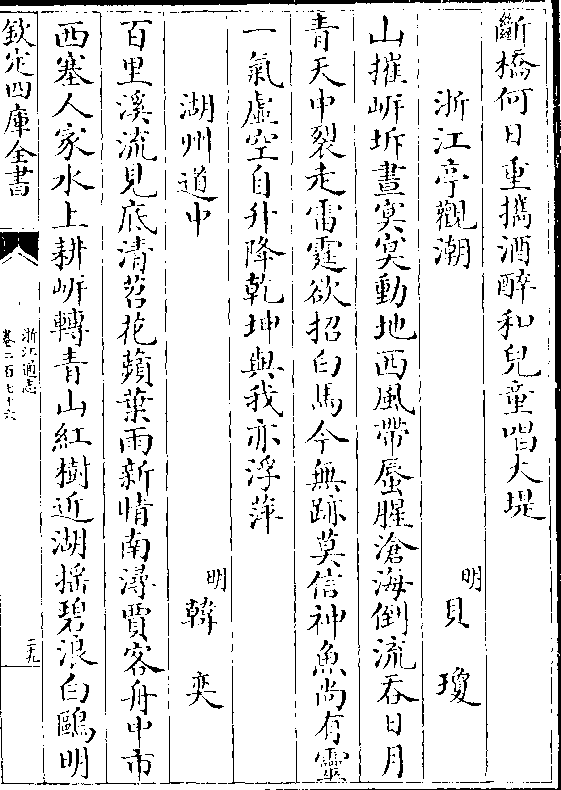 斷橋何日重攜酒醉和兒童唱大堤
浙江亭觀潮
明貝瓊
山摧岍坼晝冥冥動地西風帶蜃腥滄海倒流吞日月
青天中裂走雷霆欲招白馬今無跡莫信神魚尚有靈
一氣虛空自升降乾坤與我亦浮萍
湖州道中
明韓奕
百里溪流見底清苕花蘋葉雨新晴南潯賈客舟中市
西塞人家水上耕岍轉青山紅樹近湖搖碧浪白鷗明
欽定四庫全書
浙江通志
卷二百七十六
二九